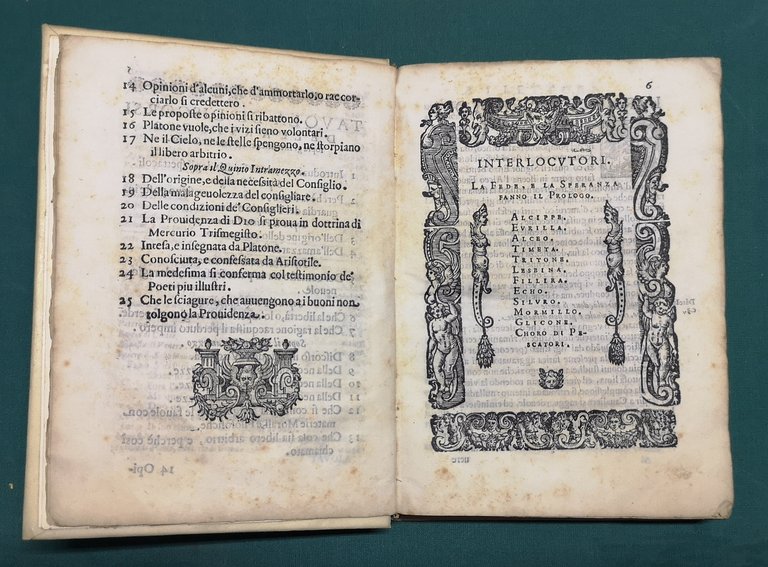 14 Opinioni d'alcuni, che d'ammortarlo, o rac cor-
ciarlo si credettero.
15 Le proposte opinioni si ribattono.
16 Platone vuole, che i vizi sieno volontari.
17 Ne il Cielo, ne le stelle spengono, ne storpiano
il libero arbitrio.
Sopra il Quinto Intramezzo.
18 Dell'origine, e della necessità del Consiglio.
19 Della malageuolezza del consigliare.
20 Delle condizioni de' Consiglieri.
21 La Prouidenza di DIO si proua in dottrina di
Mercurio Trismegisto.
22 Intesa, e insegnata da Platone.
23 Conosciuta, e confessata da Aristotile.
24 La medesima si conferma col testimonio de'
Poeti piu illustri.
25 Che le sciagure, che auuengono a i buoni non
tolgono la Prouidenza.
6
INTERLOCVTORI.
LA FEDE, E LA SPERANZA
FANNO IL PROLOGO.
ALCIPPE.
EVRILLA.
ALCEO.
TIMETA.
TRITONE.
LESBINA.
FILLERA.
ECHO.
SILVRO.
MORMILLO.
GLICONE.
CHORO DI PE-
SCATORI.